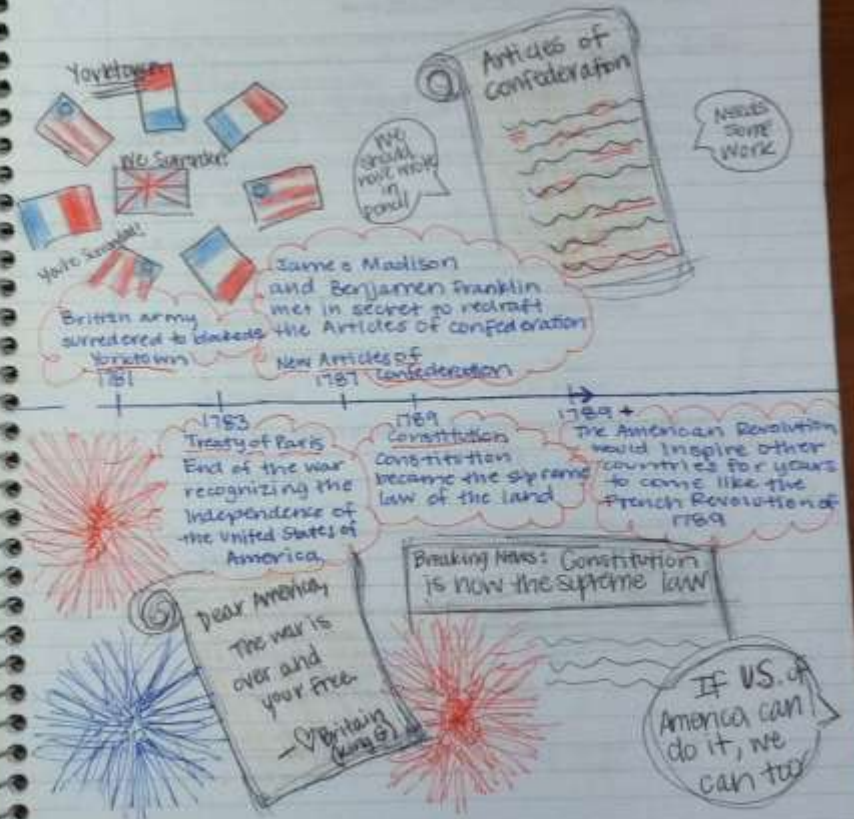 Yorktown
We Surrender!
You're Surrounded!
We
should
have wrote
in
pencil
Articles of
confederation
Needs
some
work
British army
surredered to
Yorktown
1781
James Madison
and Benjamen Franklin
met in secret to redraft
the Articles of confederation
New Articles of
1787 Confederation
1783
Treaty of Paris
End of the war
recognizing the
Independence of
the United States of
America
1789
Constitution
Constitution
became the supreme
law of the land
1789 +
The American Revolution
would Inspire other
countries for years
to come like the
French Revolution of
1789
Dear America,
The war is
over and
your free
- Britain
Breaking News: Constitution
is now the supreme law
If U.S. of
America can
do it, we
can too